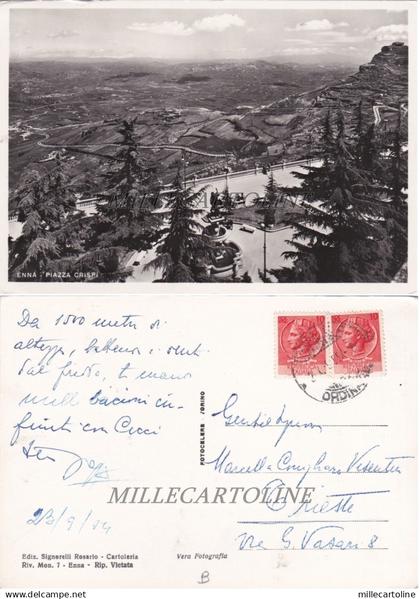 MILLECARTOLINE
ENNA - PIAZZA CRISPI
Da 1500 metri di
altezza,
dal freddo, ti mando
mille bacioni in-
finiti con Cicci
23/9/54
FOTOCELERE TORINO
MILLECARTOLINE
Gentil Signora
Marcella Conighan Visentin
Trieste
Via G. Vasari 8
ORDINA
Ediz. Signorelli Rosario - Cartoleria
Riv. Mon. 7 - Enna - Rip. Vietata
Vera Fotografia
B
www.millecartoline.com